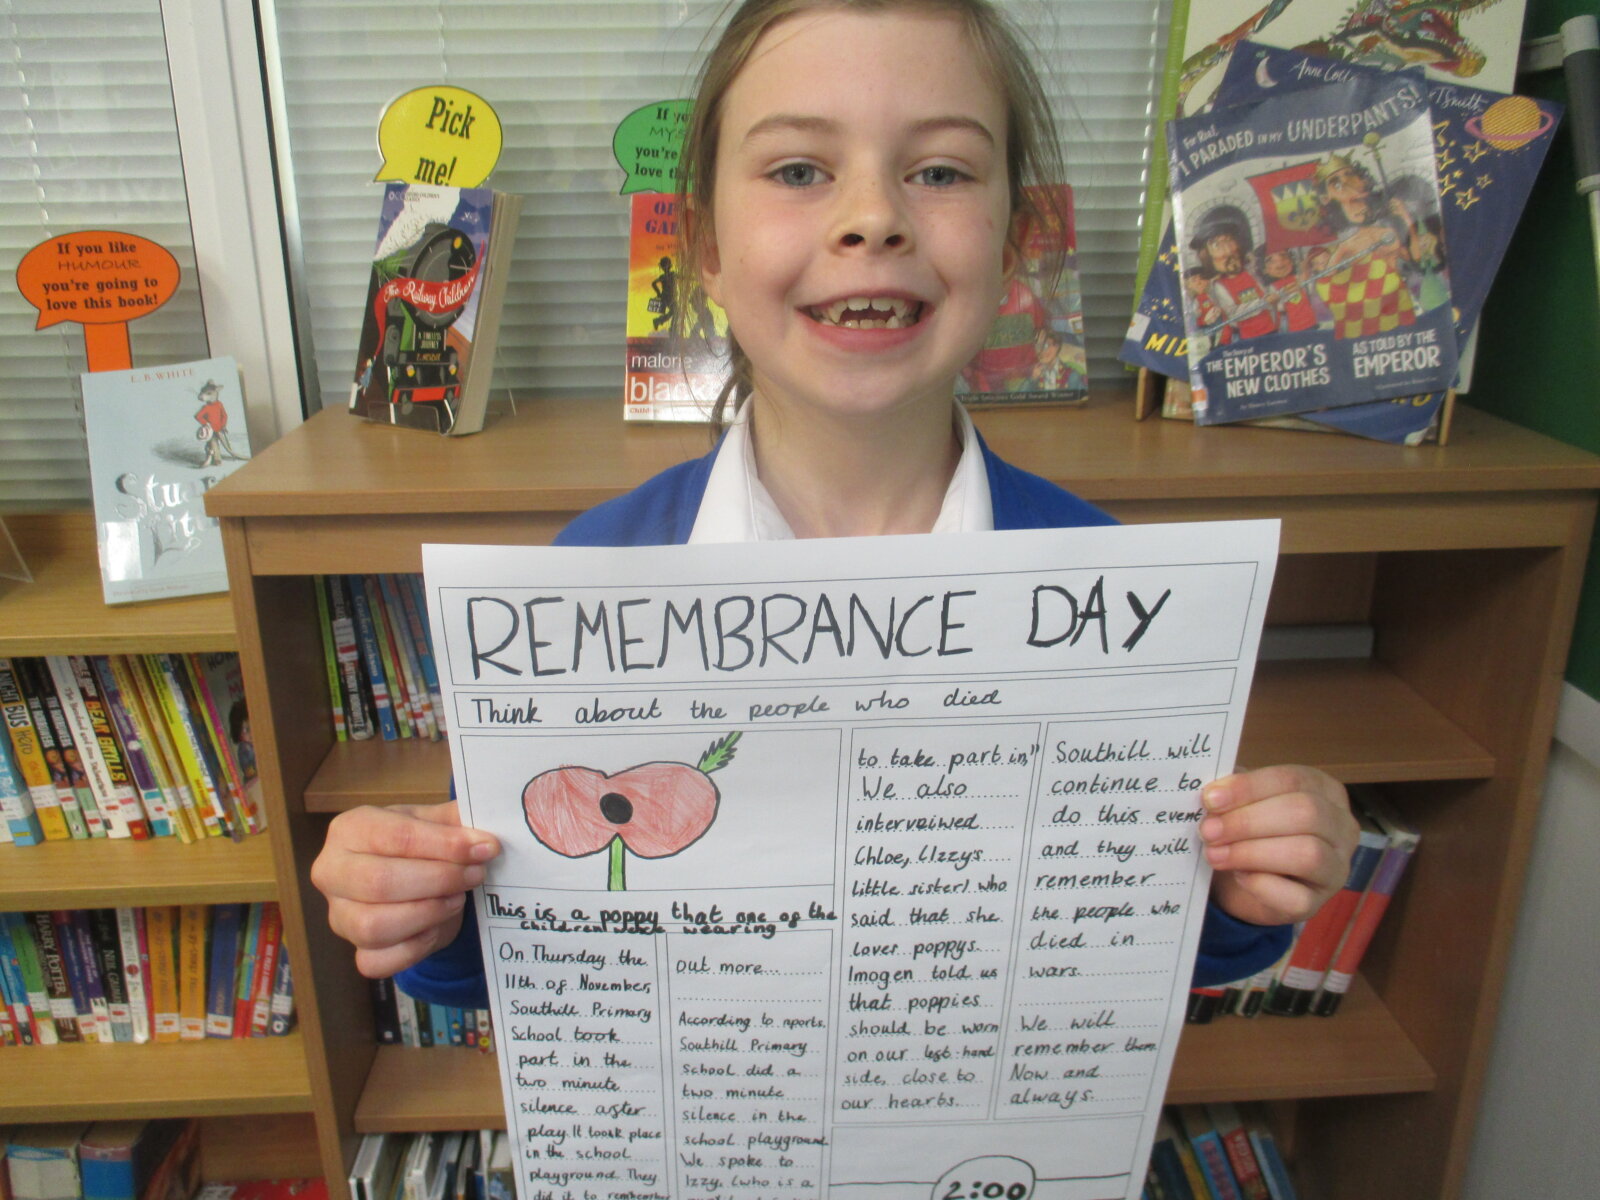 REMEMBRANCE DAY
Think about the people who died
This is a poppy that one of the
children wearing
On Thursday the
11th of November,
Southill Primary
School took
part in the
two minute
silence after
play. It took place
in the school
playground. They
did it to
out more...
According to reports,
Southill Primary
school did a
two minute
silence in the
school playground
We spoke to
Izzy, (who is a
to take part in,"
We also
interveiwed
Chloe, (Izzy's
little sister) who
said that she
loves poppys.
Imogen told us
that poppies
should be worn
on our left-hand
side, close to
our hearts.
Southill will
continue to
do this event
and they will
remember
the people who
died in
wars.
We will
remember them
Now and
always.
2:00
Pick
me!
If you like
HUMOUR
you're going to
love this book!
If yo
MYS
you're
love
E. B. WHITE
The Railway Children
A TIMELESS
JOURNEY
E. NESBIT
malorie
black
For Real,
I PARADED IN MY UNDERPANTS!
The Story of
THE EMPEROR'S
NEW CLOTHES
AS TOLD BY THE
EMPEROR
MID
HARRY POTTER
BEAR GRYLLS